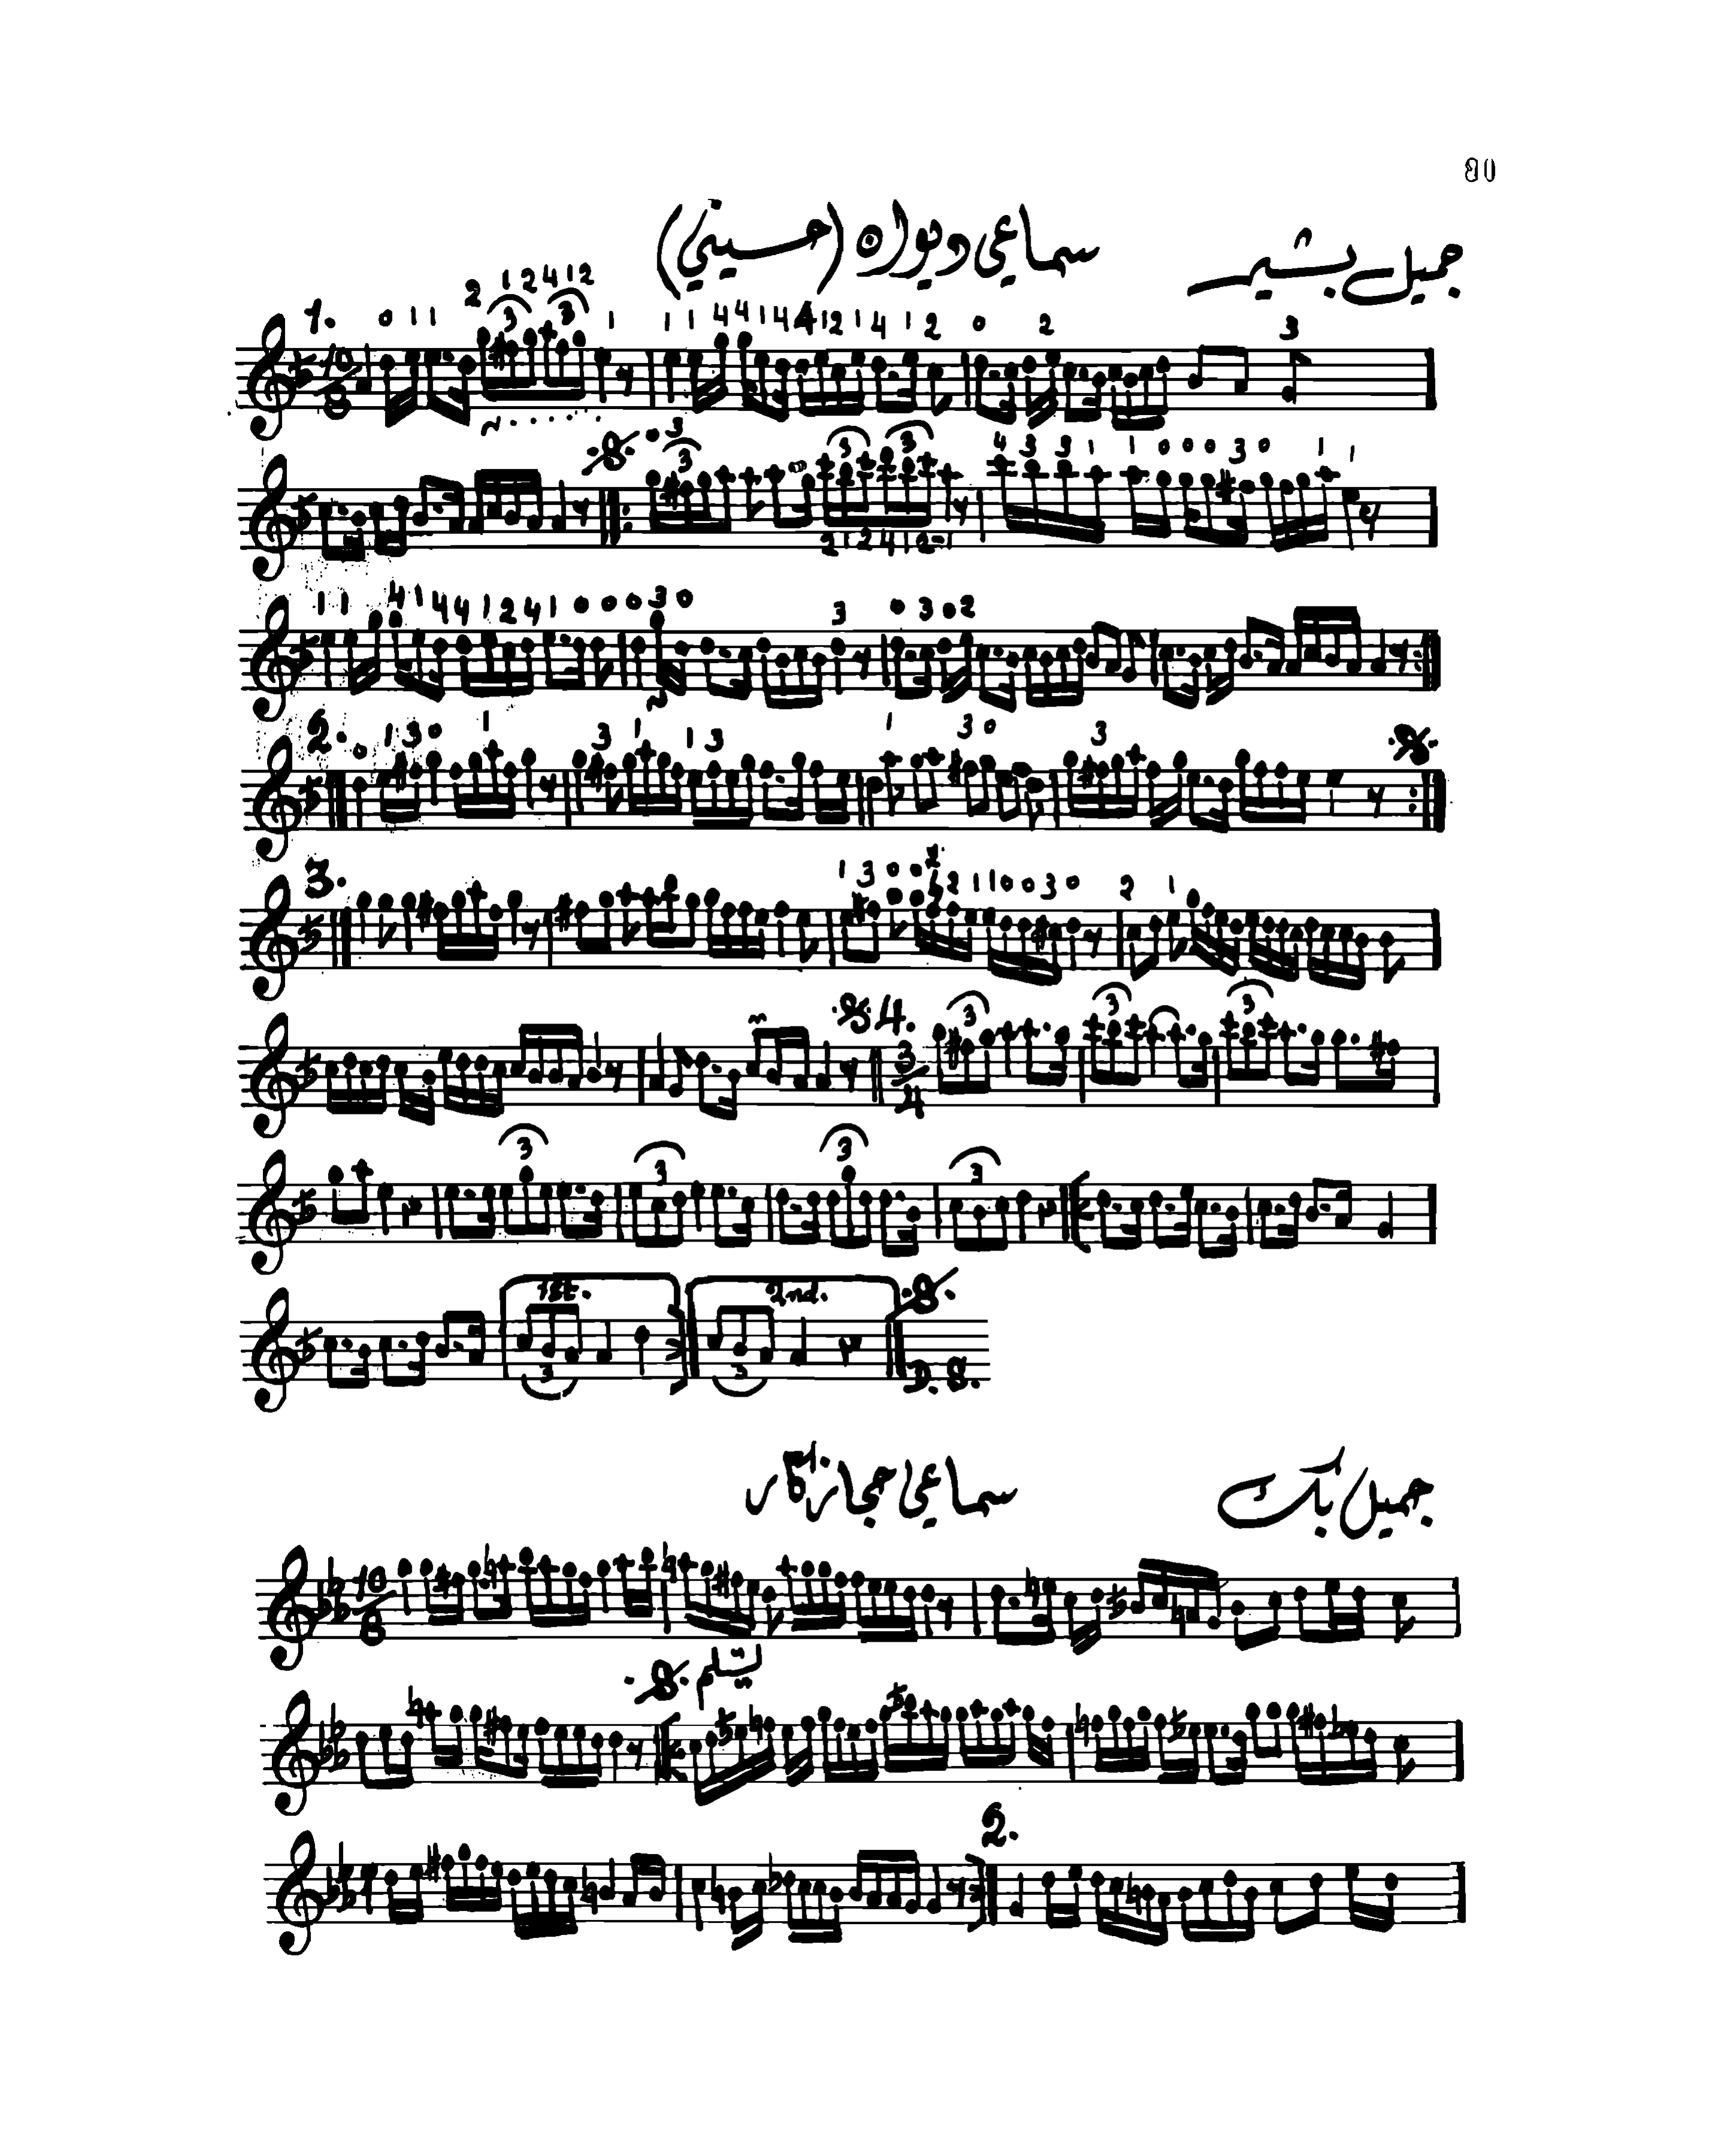 80
جميل بشير سماعي ديوان (حسيني)
1.
10/8
2.
3.
4.
3/4
1st. 2nd.
D.S.
جميل بك سماعي حجازكار
10/8
تسليم
2.